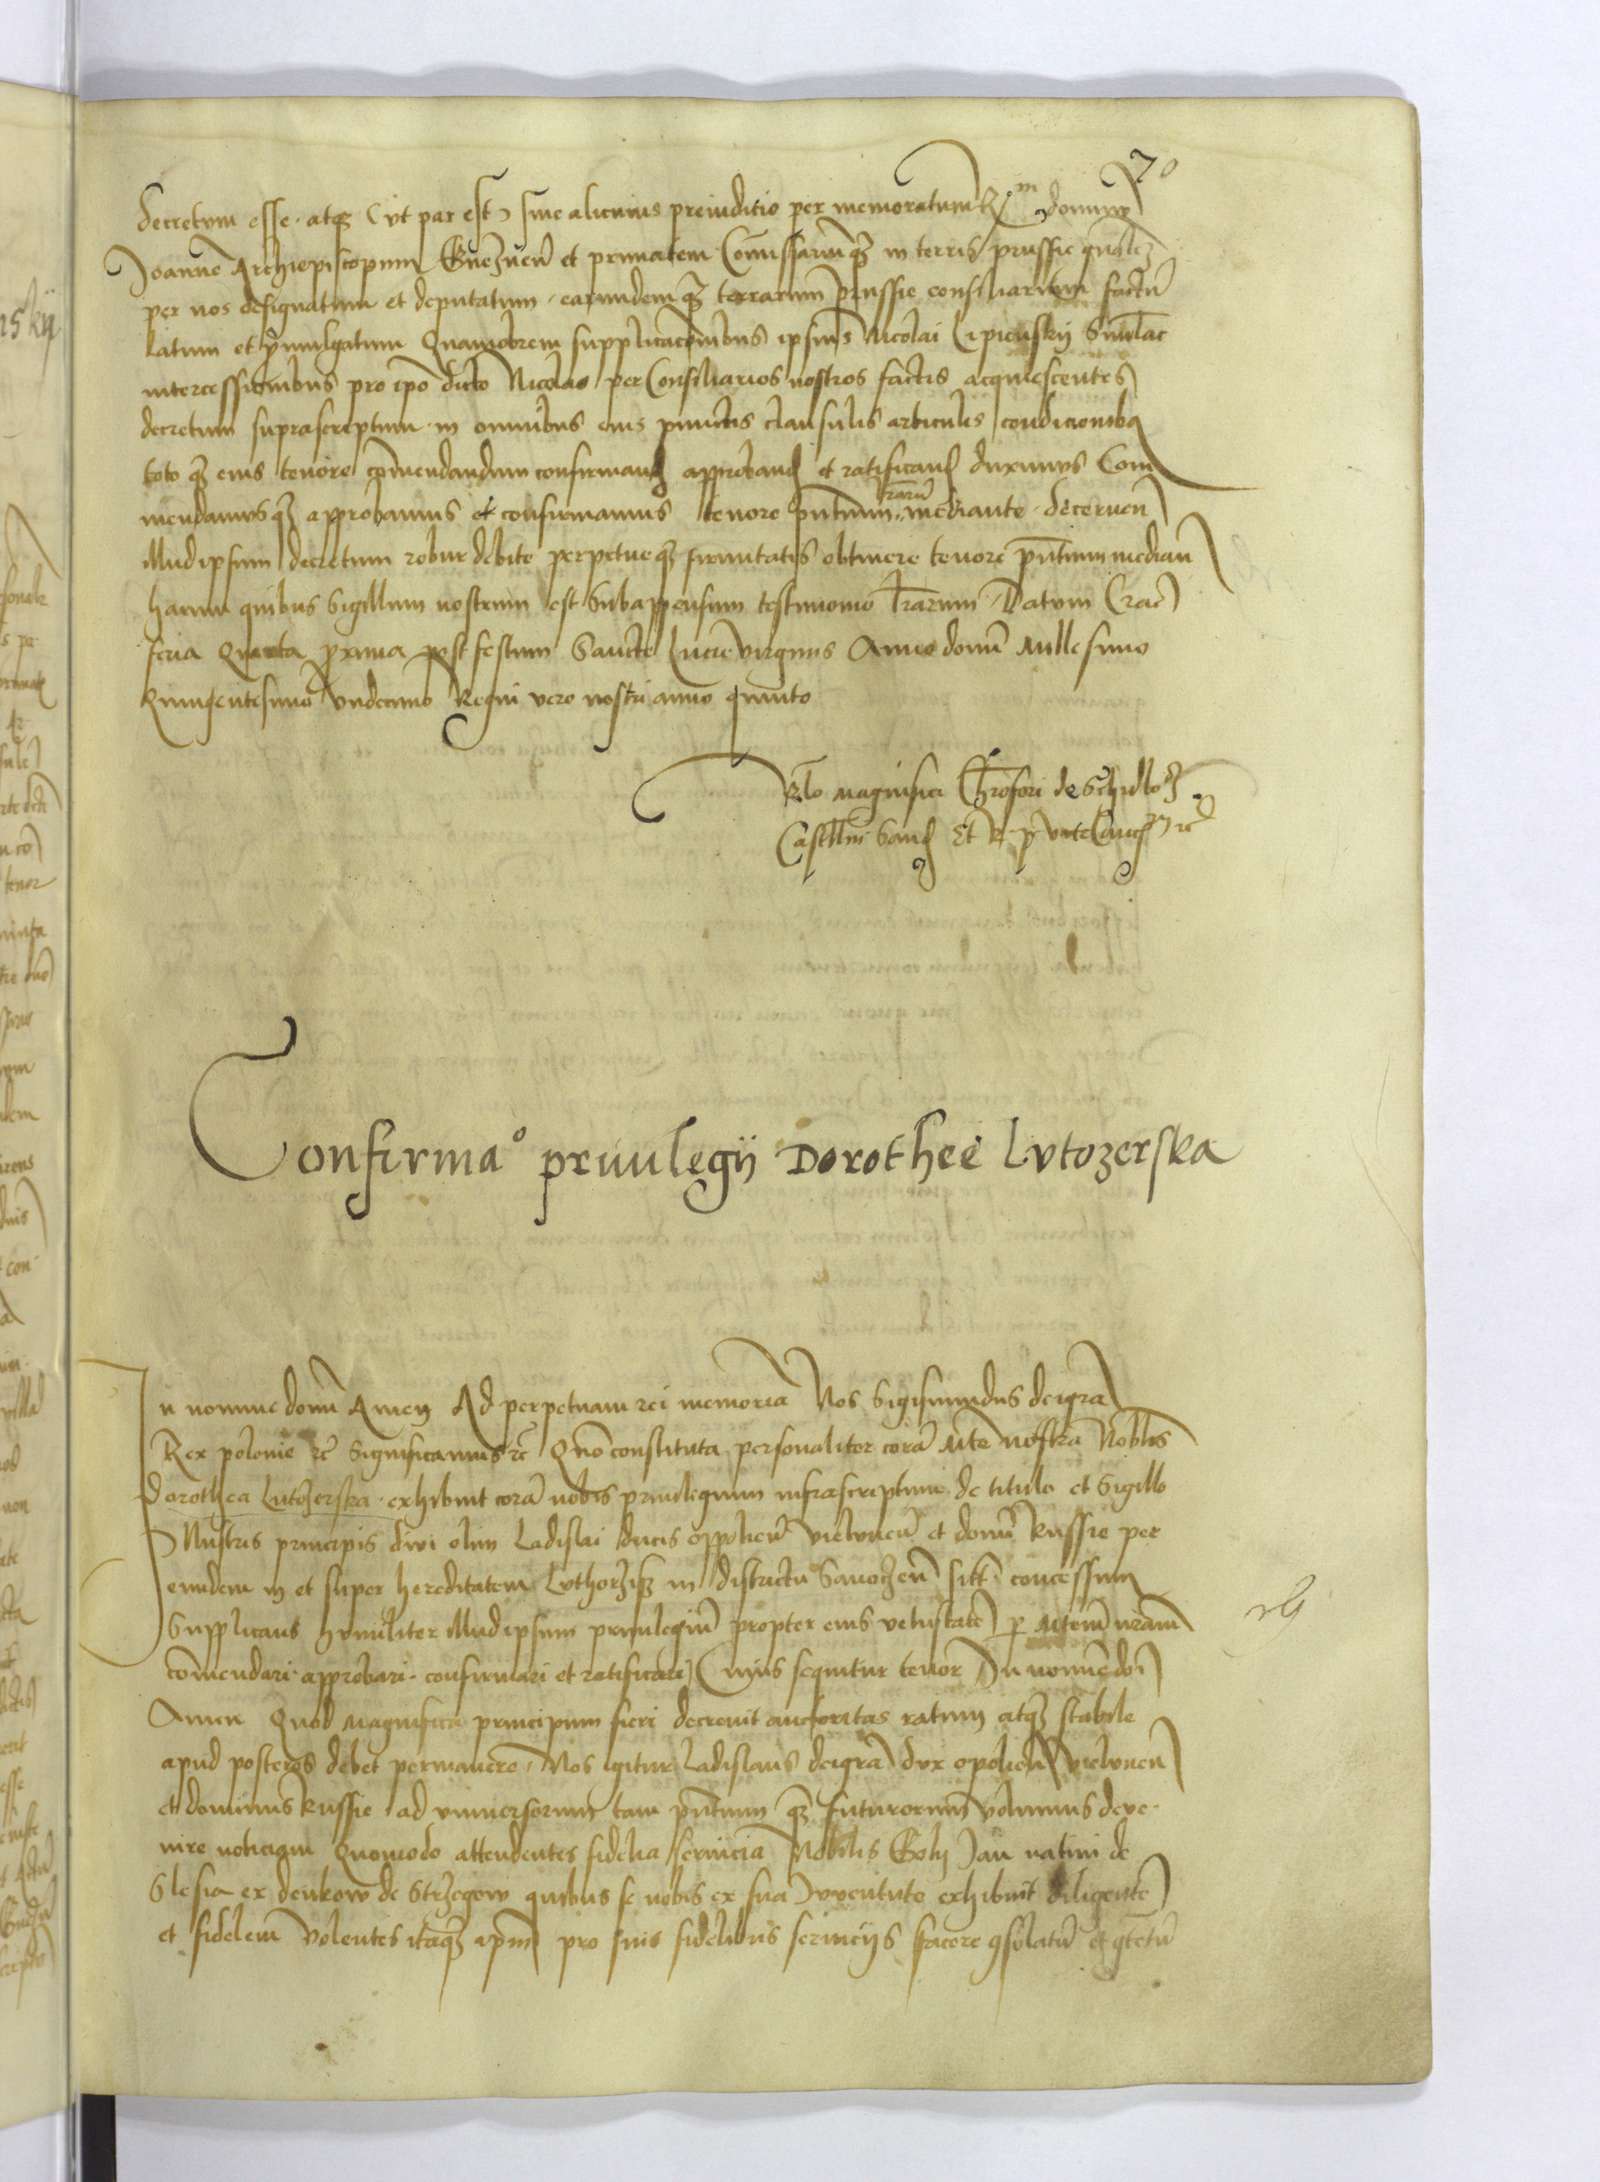 70
decretum esse. atq3 (vt par est) sine alicuius preiuditio per memoratum R.m dominum
Joannē Archiepiscopum Gneznen̄ et primatem Comissariumq3 in terris prussie gnalez
per nos designatum et deputatum. earundemq3 terrarum prussie consiliarium factū
latum et promulgatum Quamobrem supplicacionibus ipsius Nicolai Lipienskij Simulac
intercessionibus pro ipō dicto Nicolao per Consiliarios nostros factis acquiescentes
decretum suprascriptum. in omnibus eius punctis clausulis articulis condicionibq
toto q3 eius tenore comendandum confirmand approband et ratificand duximus Com
mendamusq3 approbamus et confirmamus tenore pntium lrarū mediante. decernen̄
illud ipsum decretum robur debite perpetueq3 firmitatis obtinere tenore pntium median̄
harum quibus Sigillum nostrum est Subappensum testimonio lrarum. Datum Crac̄
feria Quarta proxima post festum Sancte Lucie virginis Anno domī Millesimo
Quingentesimo vndecimo Regni vero nostri anno quinto
Rlo magnifici Chrofori de Schidlo..
Castllni Sand Et R. p vice Canc..
Confirmaº priuilegij Dorothee Lvtozerska
In nomine domī Amen Ad perpetuam rei memoriā Nos Sigismundus deigrā
Rex polonie rc̄ Significamus rc̄ Quō constituta personaliter corā Mte nostra Nobilis
Dorothea Lutozerska. exhibuit corā nobis priuilegium infrascriptum. de titulo et Sigillo
Illustris principis diui olim Ladislai ducis oppolien̄ vielunen̄ et domī Russie per
eundem in et super hereditatem Luthorzisz in districtu Sanoczen̄ sitt. concessum
Supplicans humiliter illud ipsum priuilegiū propter eius vetustatē p Mtem nram̄
cōmendari. approbari. confirmari et ratificari) Cuius sequitur tenor In nomīe doī
Amen Quod magnifica principum fieri decreuit auctoritas ratum atq3 stabile
apud posteros debet permanere. Nos igitur Ladislaus deigrā dux opolien̄ vielunen̄
et dominus Russie ad vniuersorum tam pntium q3 futurorum volumus deve-
nire noticiam Quomodo attendentes fidelia seruicia Nobilis Golij Jan natiui de
Slesia ex denkow de Strzegow quibus se nobis ex sua Juuentute exhibuit diligentē
et fidelem Volentes itaq3 ipm pro suis fidelibus seruicijs facere gsolatū et gtētū